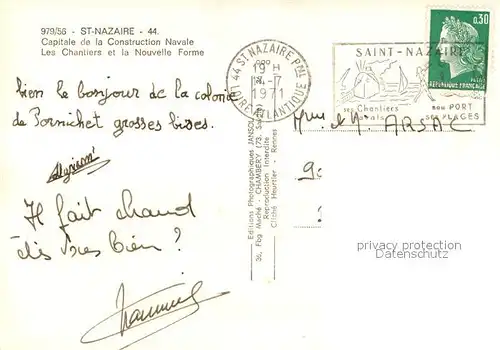 979/56 - ST-NAZAIRE - 44.
Capitale de la Construction Navale
Les Chantiers et la Nouvelle Forme
bien le bonjour de la colonie
de Pornichet grosses bises.
Il fait chaud
très bien ?
44 ST NAZAIRE PPAL
19 H
-7
1971
LOIRE-ATLANTIQUE
SAINT-NAZAIRE
ses Chantiers
Navals
son PORT
ses PLAGES
0,30
REPUBLIQUE FRANÇAISE
et M. ARSAC
Editions Photographiques JANSOL
36, Fbg Maché - CHAMBERY (73. Savoie)
Reproduction Interdite
Cliché Heurtier - Rennes
privacy protection
Datenschutz